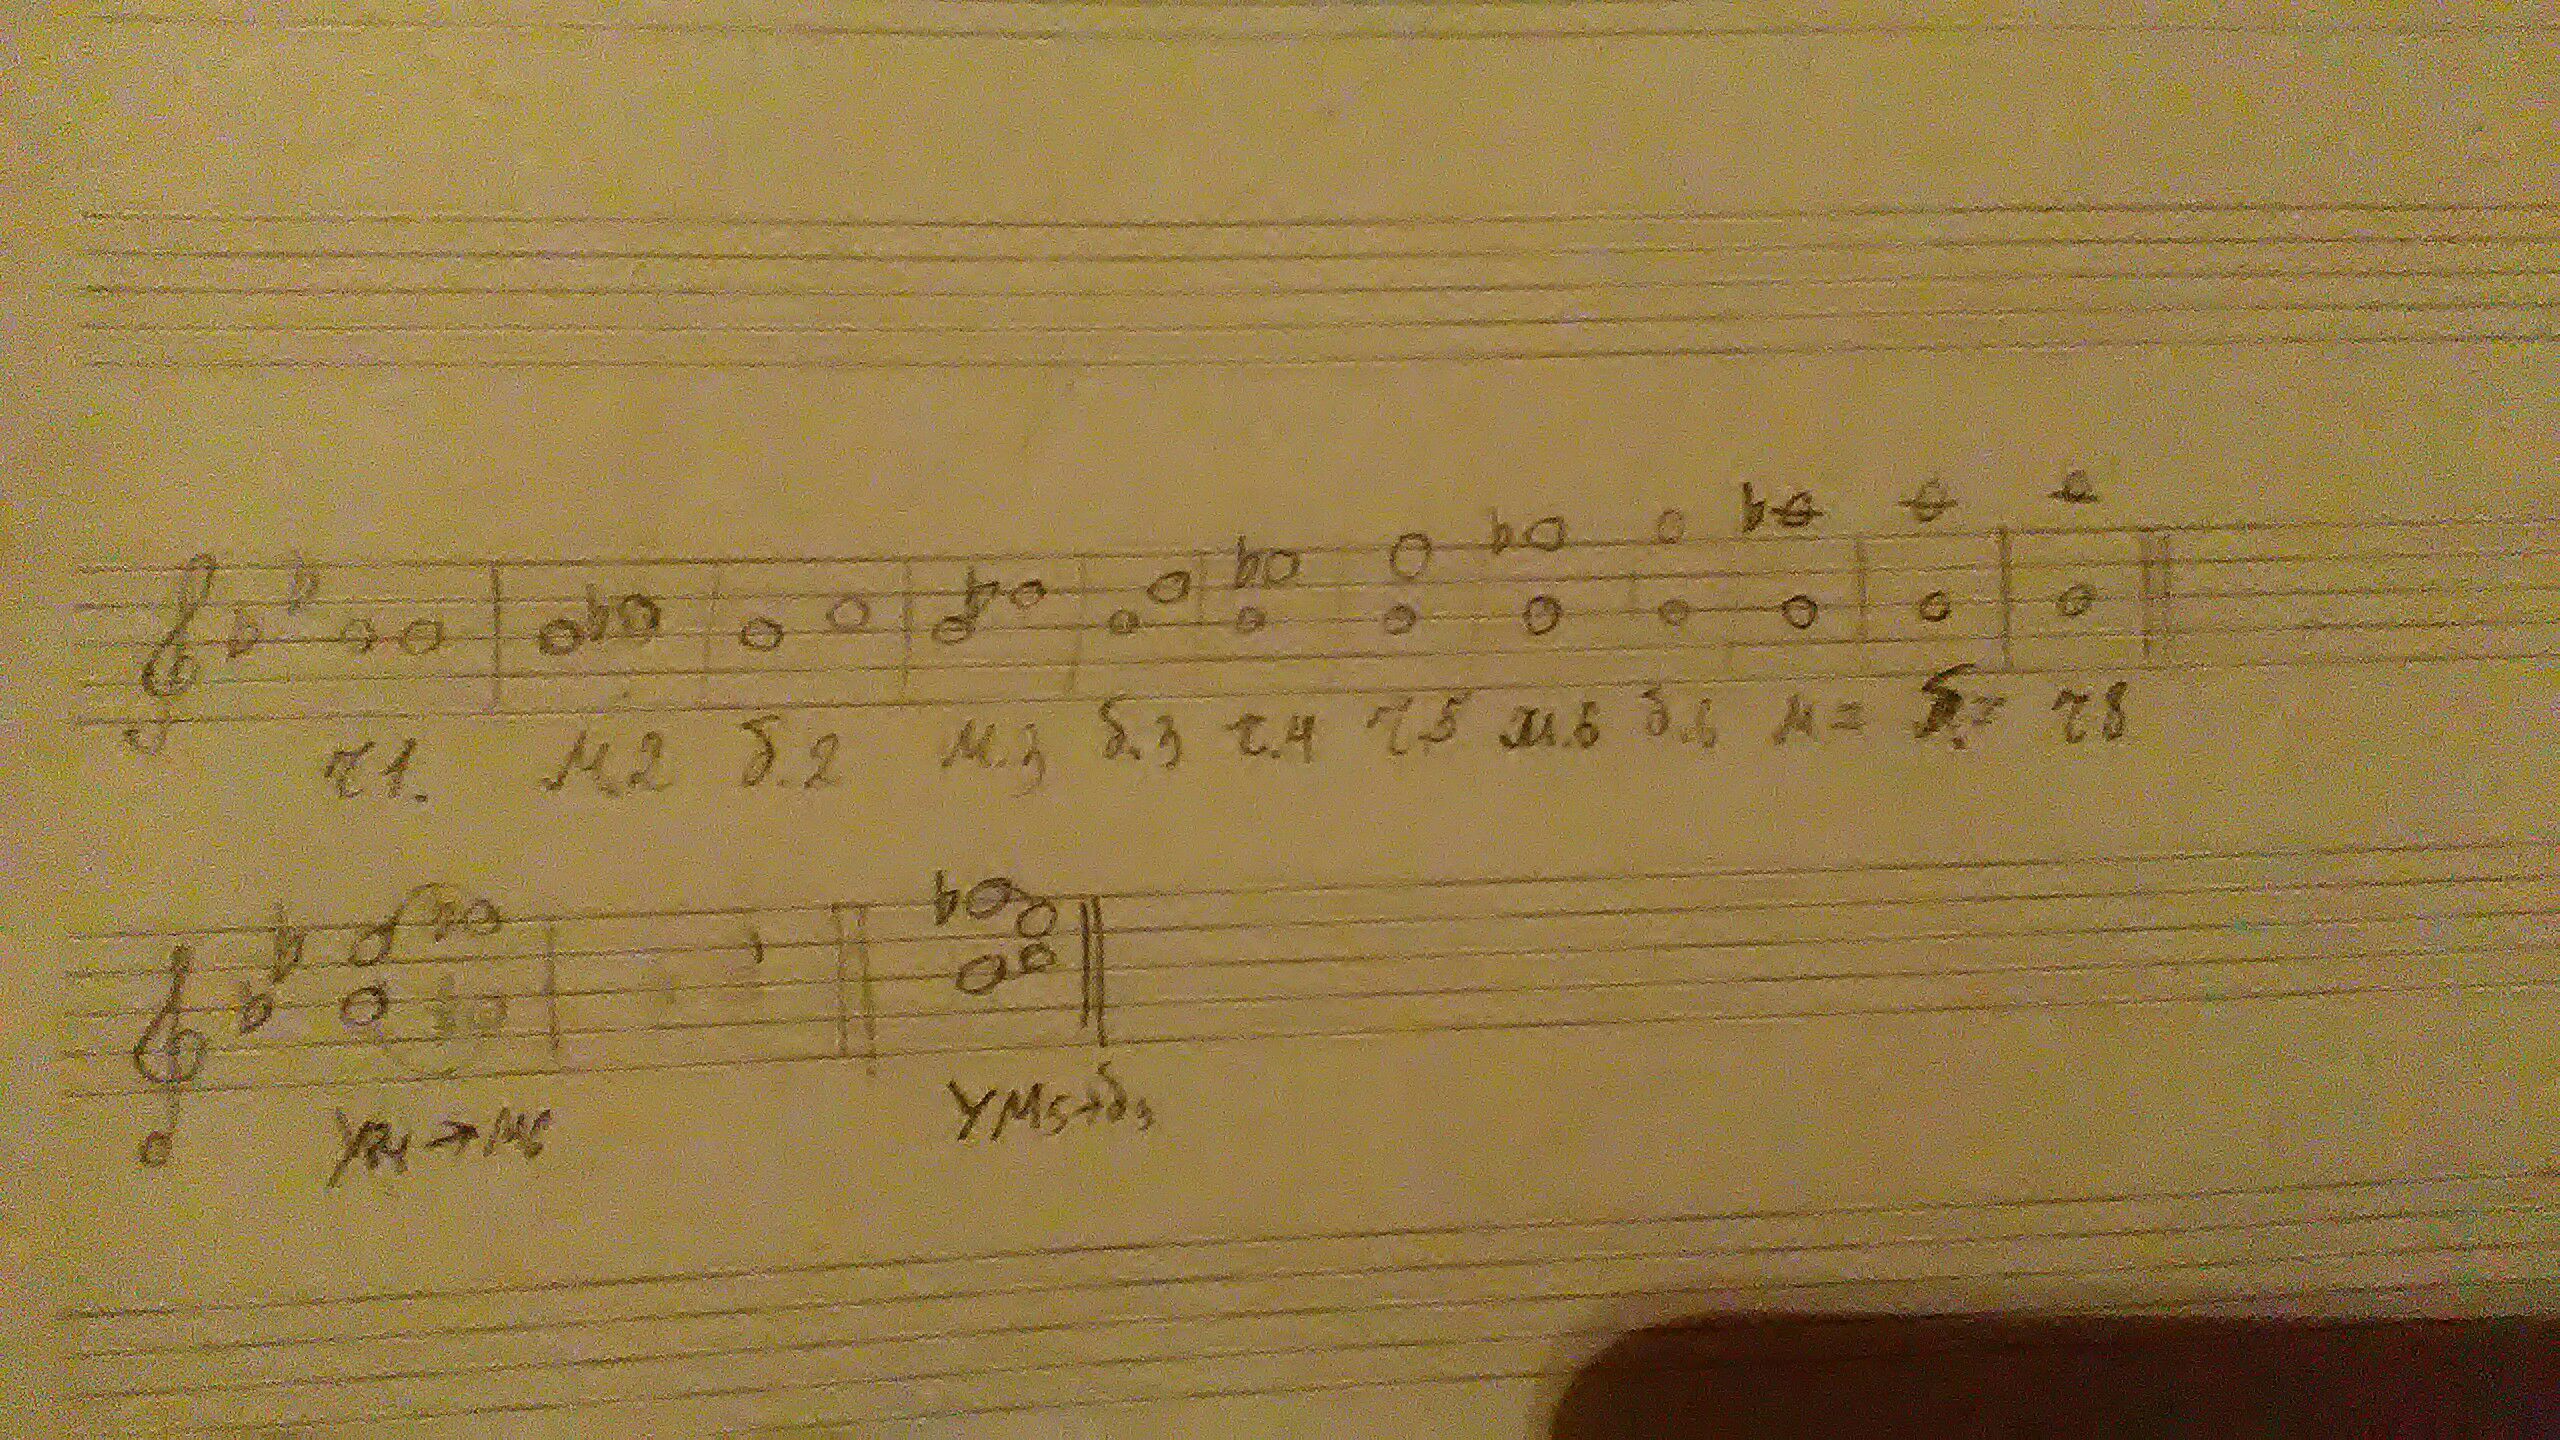 ч1. м.2 б.2 м.3 б.3 ч.4 ч.5 м.6 б.6 м 7 б.7 ч8
Ум5→б3